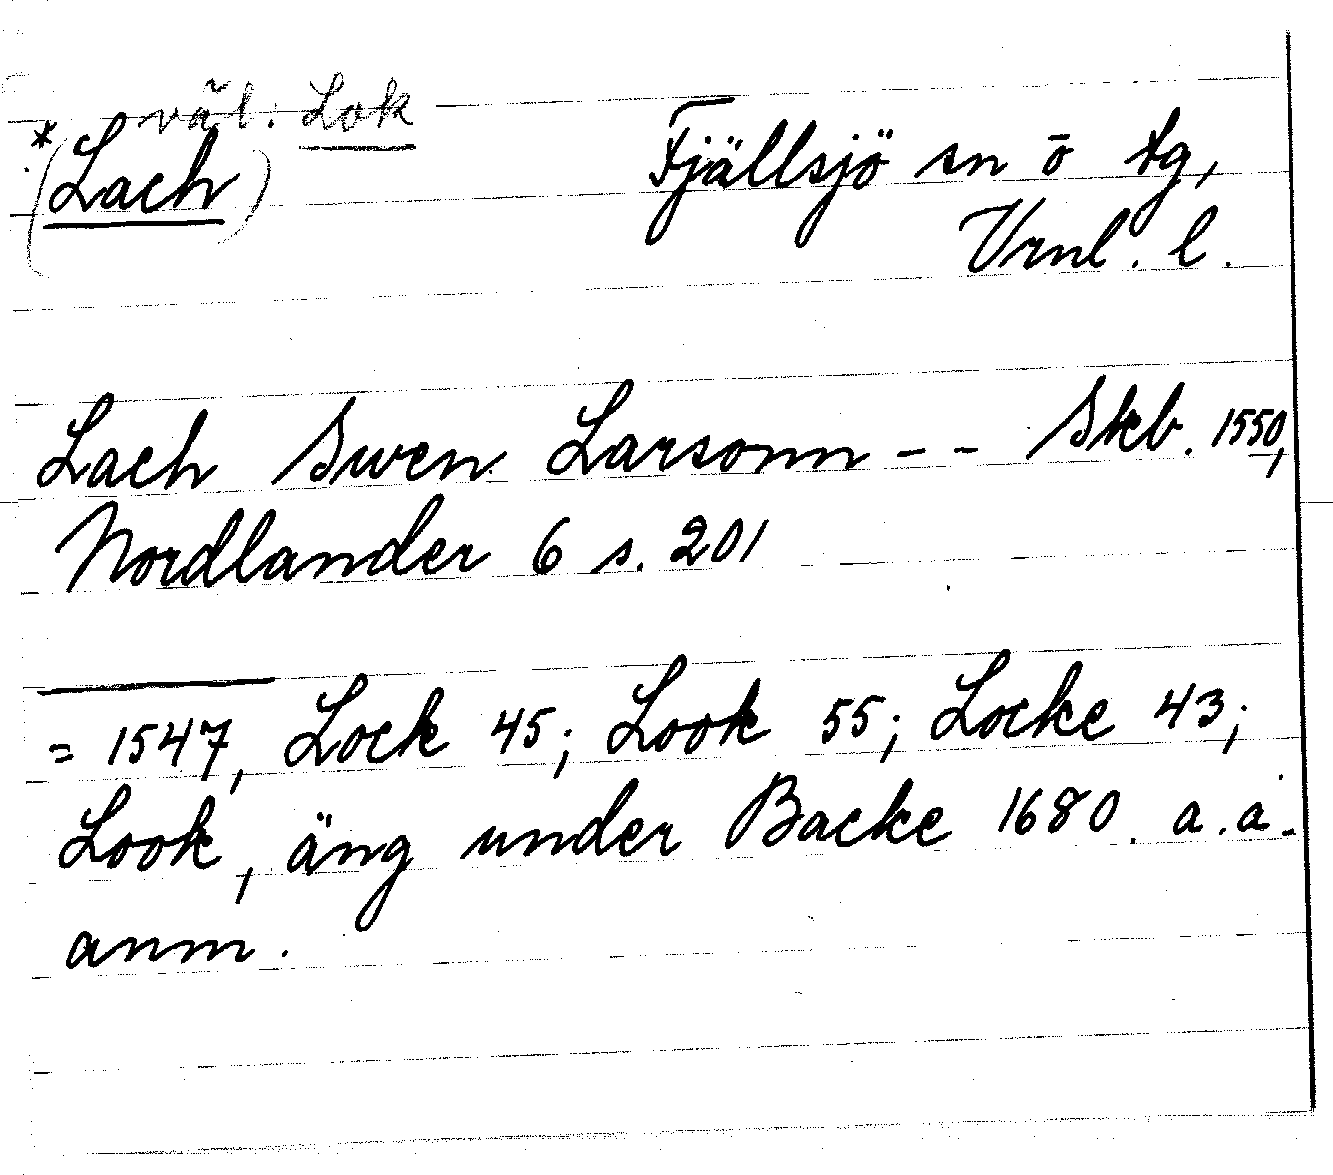 väl: Lok
*(Lach)
Fjällsjö sn ö tg,
Vrnl. l.
Lach Swen Larsonn - - Skb. 1550,
Nordlander 6 s. 201
= 1547, Lock 45; Look 55; Locke 43;
Look, äng under Backe 1680. a.a.
anm.